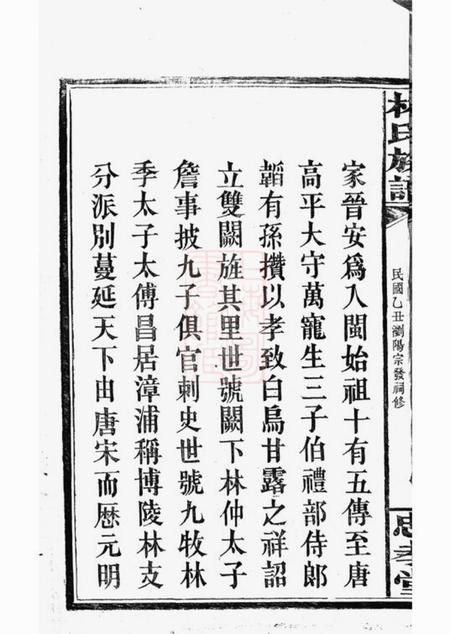 林氏族譜
民國乙丑瀏陽宗發祠修
思孝堂
家晉安爲入閩始祖十有五傳至唐
高平大守萬寵生三子伯禮部侍郎
韜有孫攢以孝致白烏甘露之祥詔
立雙闕旌其里世號闕下林仲太子
詹事披九子俱官刺史世號九牧林
季太子太傅昌居漳浦稱博陵林支
分派別蔓延天下由唐宋而厯元明